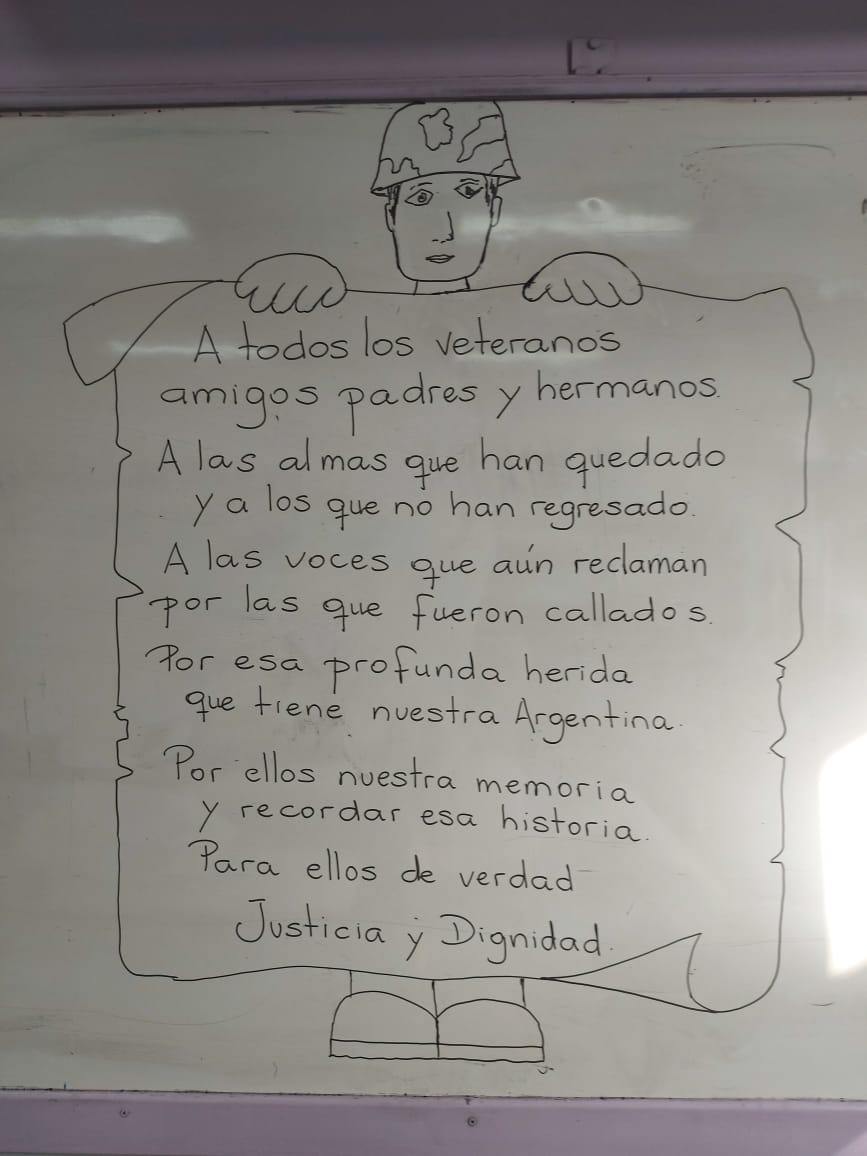 A todos los veteranos
amigos padres y hermanos.
A las almas que han quedado
y a los que no han regresado.
A las voces que aún reclaman
por las que fueron callados.
Por esa profunda herida
que tiene nuestra Argentina.
Por ellos nuestra memoria
y recordar esa historia.
Para ellos de verdad
Justicia y Dignidad.